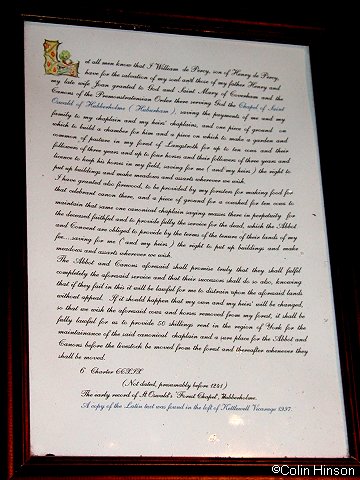 Let all men know that I William de Percy, son of Henry de Percy,
have for the salvation of my soul and those of my father Henry and
my late wife Joan granted to God and Saint Mary of Coverham and the
Canons of the Premonstratensian Order there serving God the Chapel of Saint
Oswald of Hubberholme (Huburham), saving the payments of me and my
family to my chaplain and my heirs' chaplain, and one piece of ground on
which to build a chamber for him and a piece on which to make a garden and
common of pasture in my forest of Langstroth for up to ten cows and their
followers of three years and up to four horses and their followers of three years and
licence to keep his horses in my field, saving for me (and my heirs) the right to
put up buildings and make meadows and assarts wherever we wish.
I have granted also firewood, to be provided by my forester for making food for
that celebrant canon there, and a piece of ground for a cowshed for ten cows to
maintain that same one canonical chaplain saying masses there in perpetuity for
the deceased faithful and to provide fully the service for the dead, which the Abbot
and Convent are obliged to provide by the terms of the tenure of their lands of my
fee.....saving for me (and my heirs) the right to put up buildings and make
meadows and assarts wherever we wish.
The Abbot and Canons aforesaid shall promise truly that they shall fulfil
completely the aforesaid service and that their successors shall do so also, knowing
that if they fail in this it will be lawful for me to distrain upon the aforesaid lands
without appeal. If it should happen that my own and my heirs' will be changed,
so that we wish the aforesaid cows and horses removed from my forest, it shall be
fully lawful for us to provide 50 shillings rent in the region of York for the
maintenance of the said canonical chaplain and a sure place for the Abbot and
Canons before the livestock be moved from the forest and thereafter whenever they
shall be moved.
6 Charter CCXIX
(Not dated, presumably before 1241)
The early record of St Oswald's 'Forest Chapel', Hubberholme.
A copy of the Latin text was found in the loft of Kettlewell Vicarage 1997.
©Colin Hinson